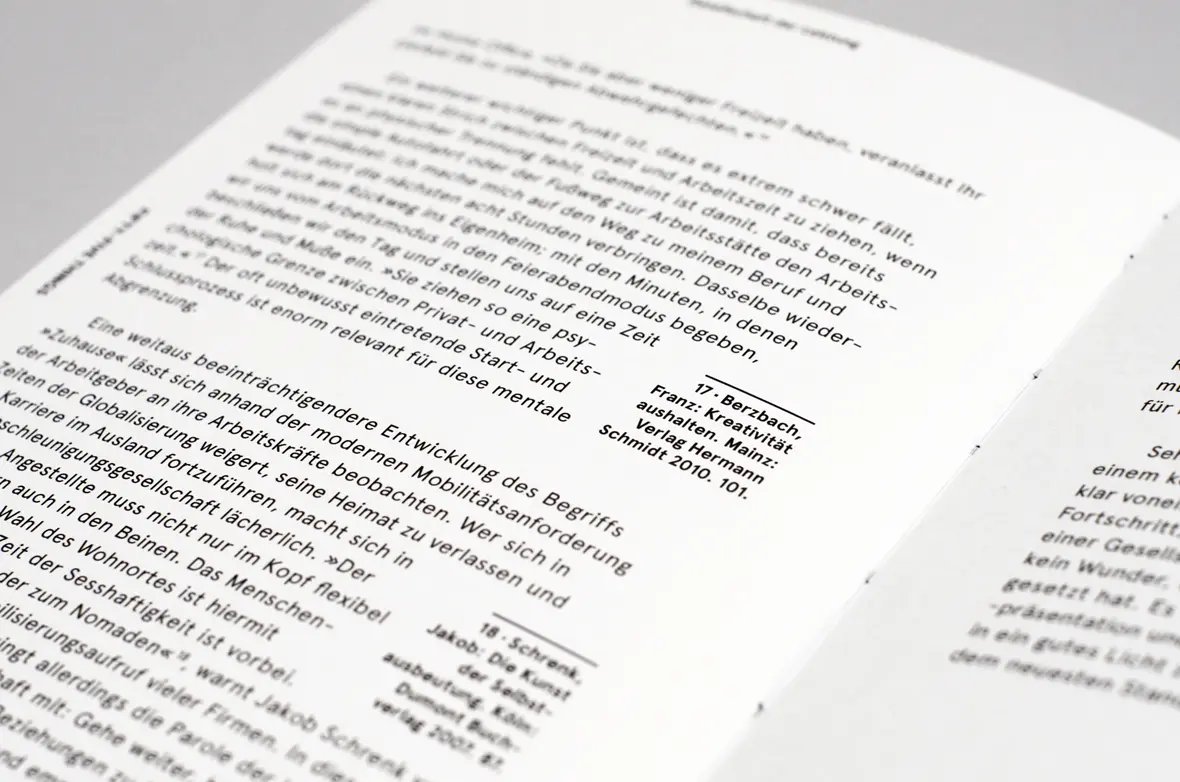 im Home Office. »Da Sie aber weniger Freizeit haben, veranlasst Ihr
Ein weiterer wichtiger Punkt ist, dass es extrem schwer fällt,
einen klaren Strich zwischen Freizeit und Arbeitszeit zu ziehen, wenn
es an physischer Trennung fehlt. Gemeint ist damit, dass bereits
die simple Autofahrt oder der Fußweg zur Arbeitsstätte den Arbeits-
tag einläutet. Ich mache mich auf den Weg zu meinem Beruf und
werde dort die nächsten acht Stunden verbringen. Dasselbe wieder-
holt sich am Rückweg ins Eigenheim; mit den Minuten, in denen
wir uns vom Arbeitsmodus in den Feierabendmodus begeben,
beschließen wir den Tag und stellen uns auf eine Zeit
der Ruhe und Muße ein. »Sie ziehen so eine psy-
chologische Grenze zwischen Privat- und Arbeits-
zeit.« 17 Der oft unbewusst eintretende Start- und
Schlussprozess ist enorm relevant für diese mentale
Abgrenzung.
17 · Berzbach,
Franz: Kreativität
aushalten. Mainz:
Verlag Hermann
Schmidt 2010. 101.
Eine weitaus beeinträchtigendere Entwicklung des Begriffs
»Zuhause« lässt sich anhand der modernen Mobilitätsanforderung
der Arbeitgeber an ihre Arbeitskräfte beobachten. Wer sich in
Zeiten der Globalisierung weigert, seine Heimat zu verlassen und
Karriere im Ausland fortzuführen, macht sich in
schleunigungsgesellschaft lächerlich. »Der
Angestellte muss nicht nur im Kopf flexibel
auch in den Beinen. Das Menschen-
Wahl des Wohnortes ist hiermit
Zeit der Sesshaftigkeit ist vorbei.
der zum Nomaden« 18, warnt Jakob Schrenk
bilisierungsaufruf vieler Firmen. In
allerdings die Parole der
mit: Gehe weiter,
Beziehungen
18 · Schrenk,
Jakob: Die Kunst
der Selbst-
ausbeutung. Köln:
Dumont Buch-
verlag 2007. 87.
für
einem
klar
Fortschritt,
einer
kein Wunder,
gesetzt hat. Es
-präsentation
in ein gutes Licht
dem neuesten